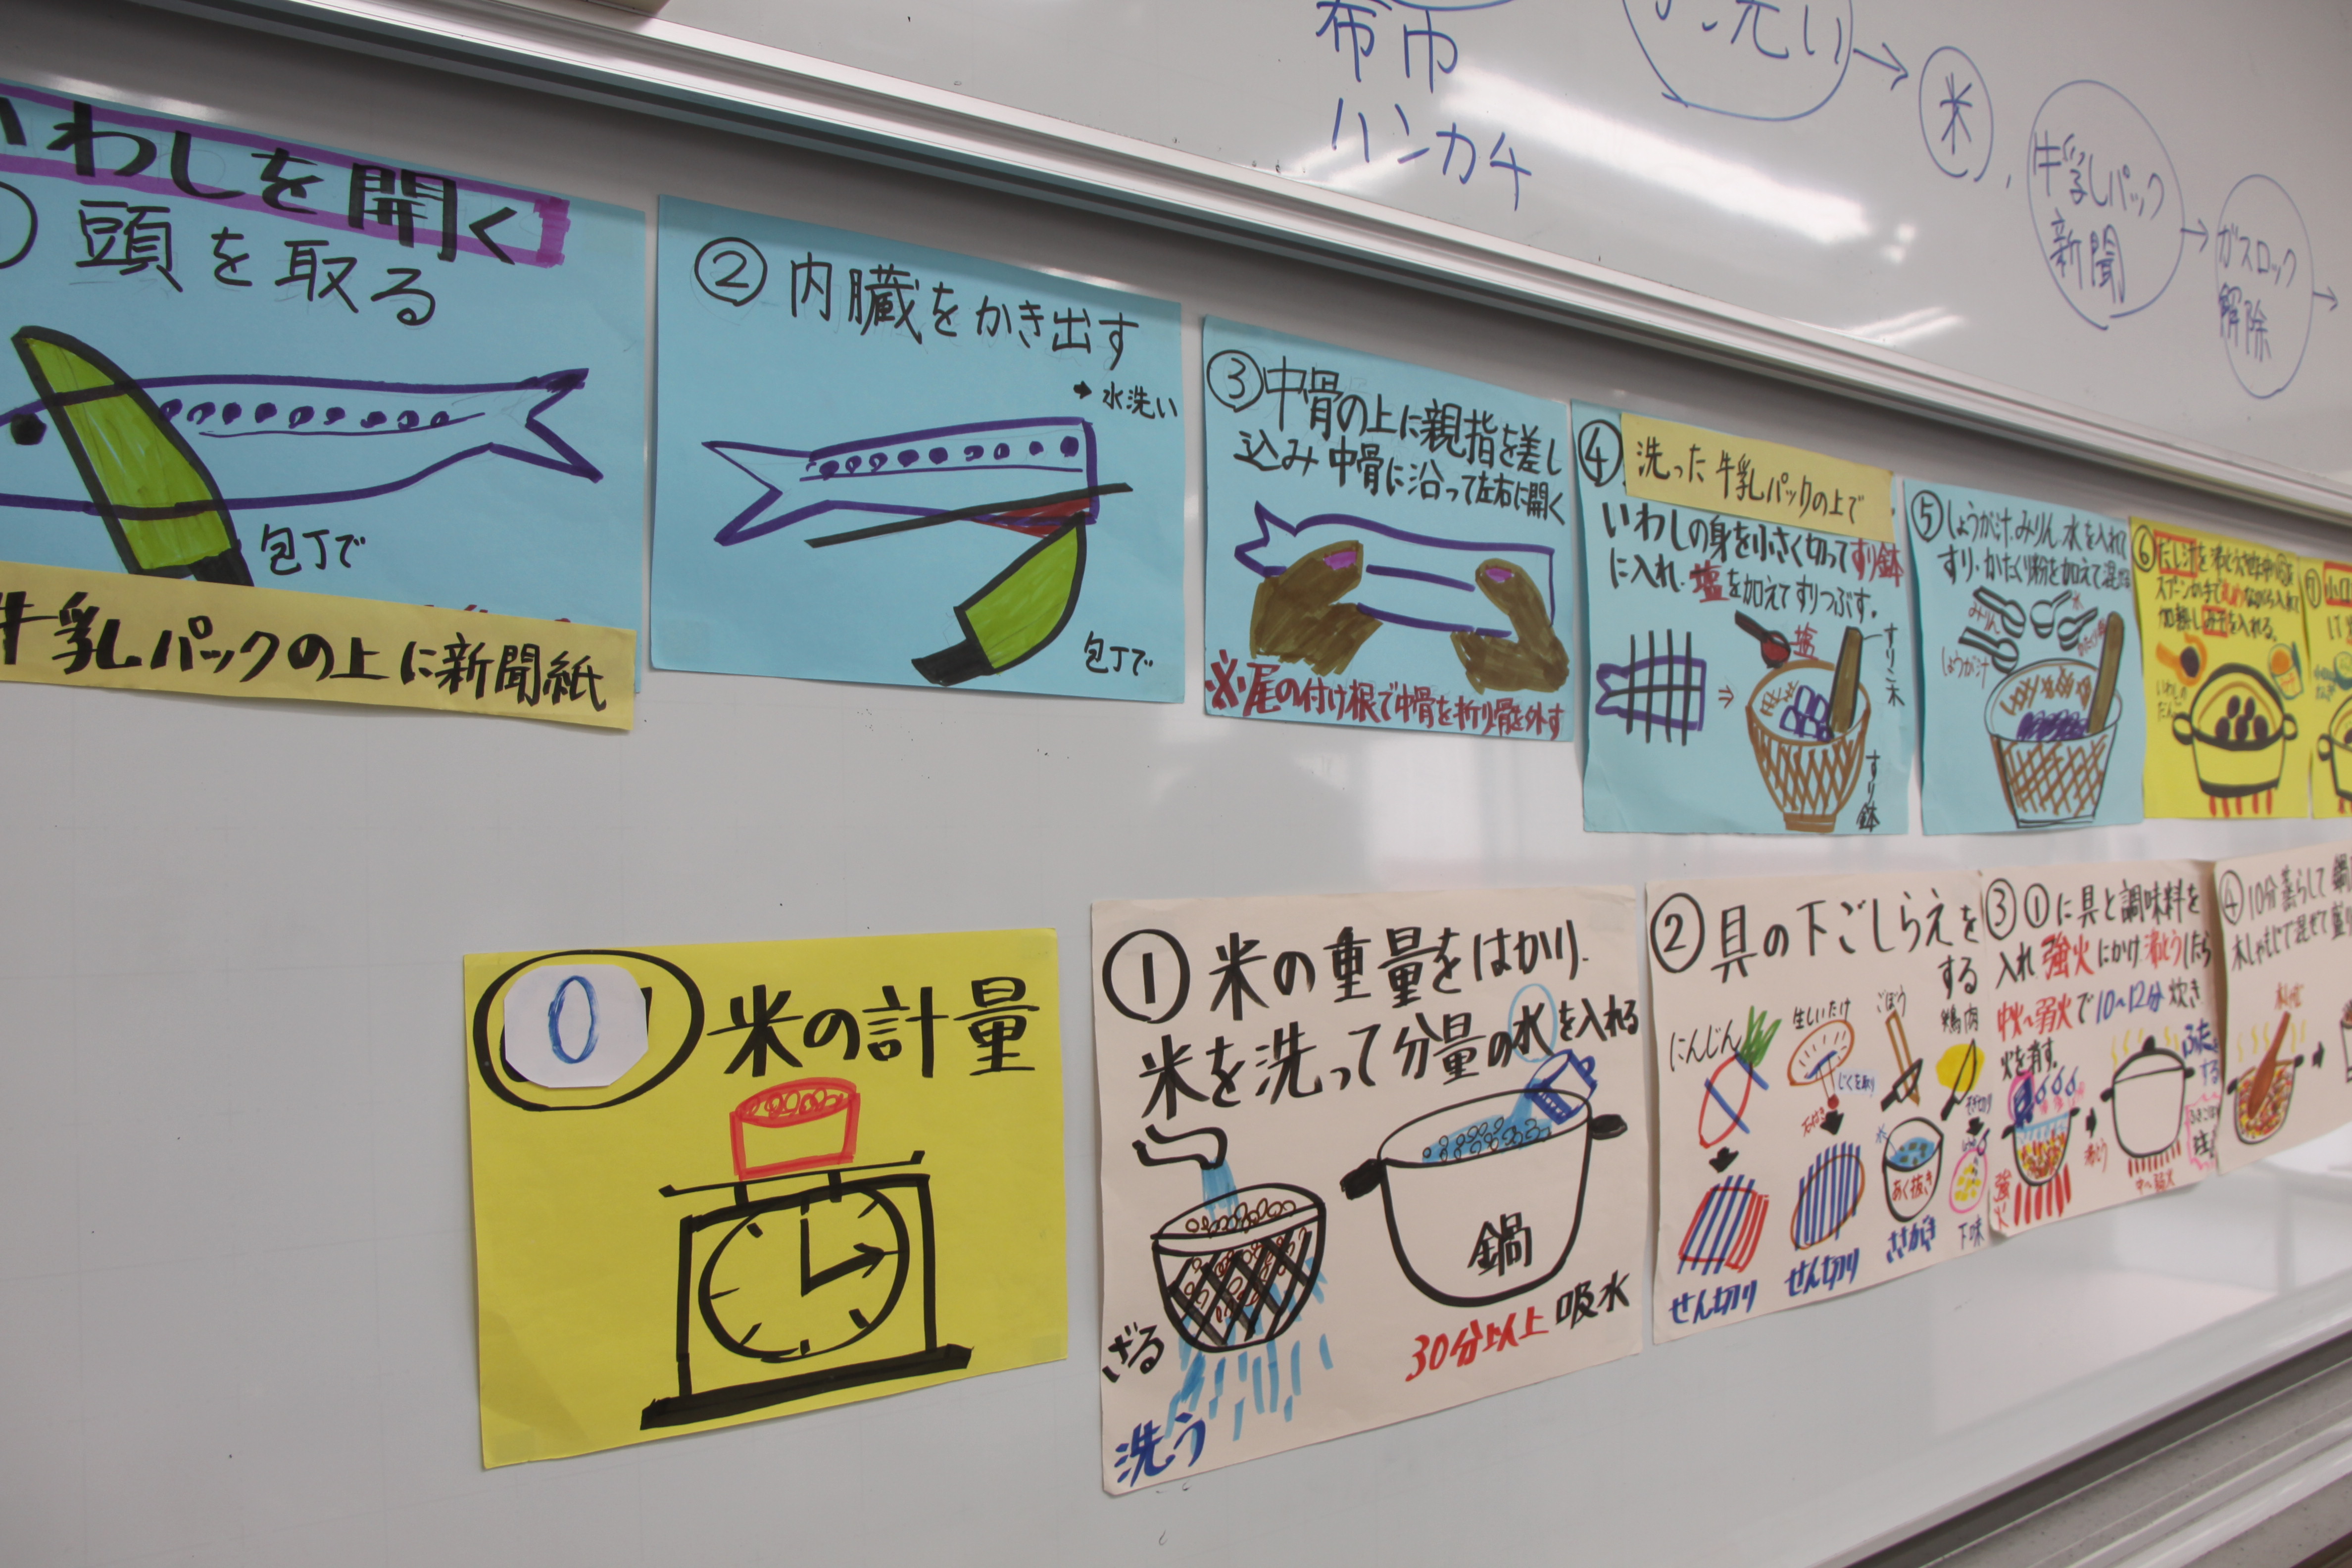 布巾
ハンカチ
米
牛乳パック
新聞
→
ガスロック
解除
→
いわしを開く
頭を取る
包丁で
牛乳パックの上に新聞紙
② 内臓をかき出す
→ 水洗い
包丁で
③ 中骨の上に親指を差し
込み 中骨に沿って左右に開く
※尾の付け根で中骨を折り骨を外す
④ 洗った牛乳パックの上で
いわしの身を小さく切ってすり鉢
に入れ、塩を加えてすりつぶす。
塩
すりこ木
すり鉢
⑤ しょうが汁、みりん、水を入れて
すり、かたくり粉を加えて混ぜる
みりん
水
しょうが汁
⑥ だし汁を
スプーンの
加熱しみそを入れる。
いわしの
だんご
⑦
0 米の計量
① 米の重量をはかり、
米を洗って分量の水を入れる
ざる
洗う
鍋
30分以上 吸水
② 具の下ごしらえを
する
にんじん
生しいたけ
ごぼう
鶏肉
じくを取り
石づき
そぎ切り
水
あく抜き
せん切り
せん切り
ささがき
下味
③ ①に具と調味料を
入れ 強火にかけ 沸とうしたら
中火〜弱火で10〜12分 炊き
火を消す。
具
強火
沸とう
ふたをする
中〜弱火
④ 10分蒸らして
木しゃもじで混ぜて